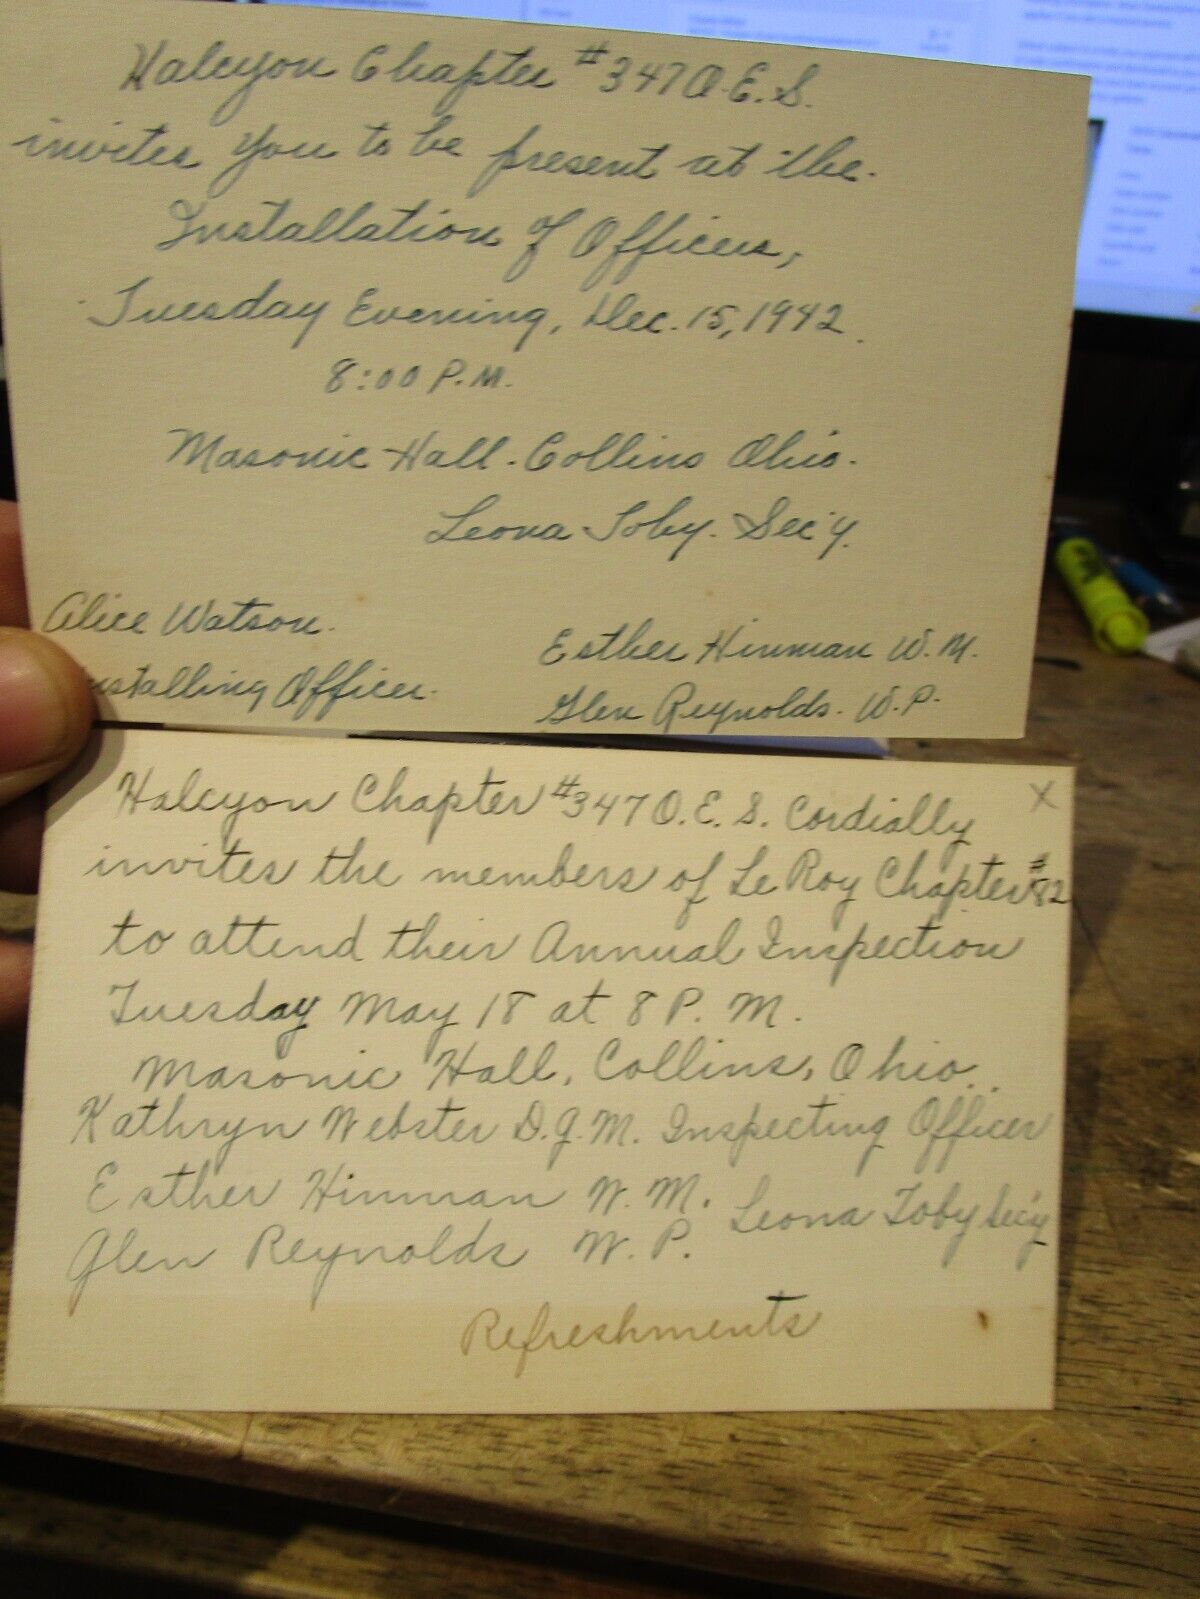 Halcyon Chapter #347 O.E.S.
invites you to be present at the.
Installation of Officers,
Tuesday Evening, Dec. 15, 1942.
8:00 P.M.
Masonic Hall. Collins Ohio.
Leona Toby. Sec'y.
Alice Watson.
Installing Officer.
Esther Hinman W.M.
Glen Reynolds. W.P.
X
Halcyon Chapter #347 O.E.S. Cordially
invites the members of Le Roy Chapter #82
to attend their Annual Inspection
Tuesday May 18 at 8 P.M.
Masonic Hall, Collins, Ohio..
Kathryn Webster D.G.M. Inspecting Officer
Esther Hinman W.M. Leona Toby Sec'y
Glen Reynolds W.P.
Refreshments